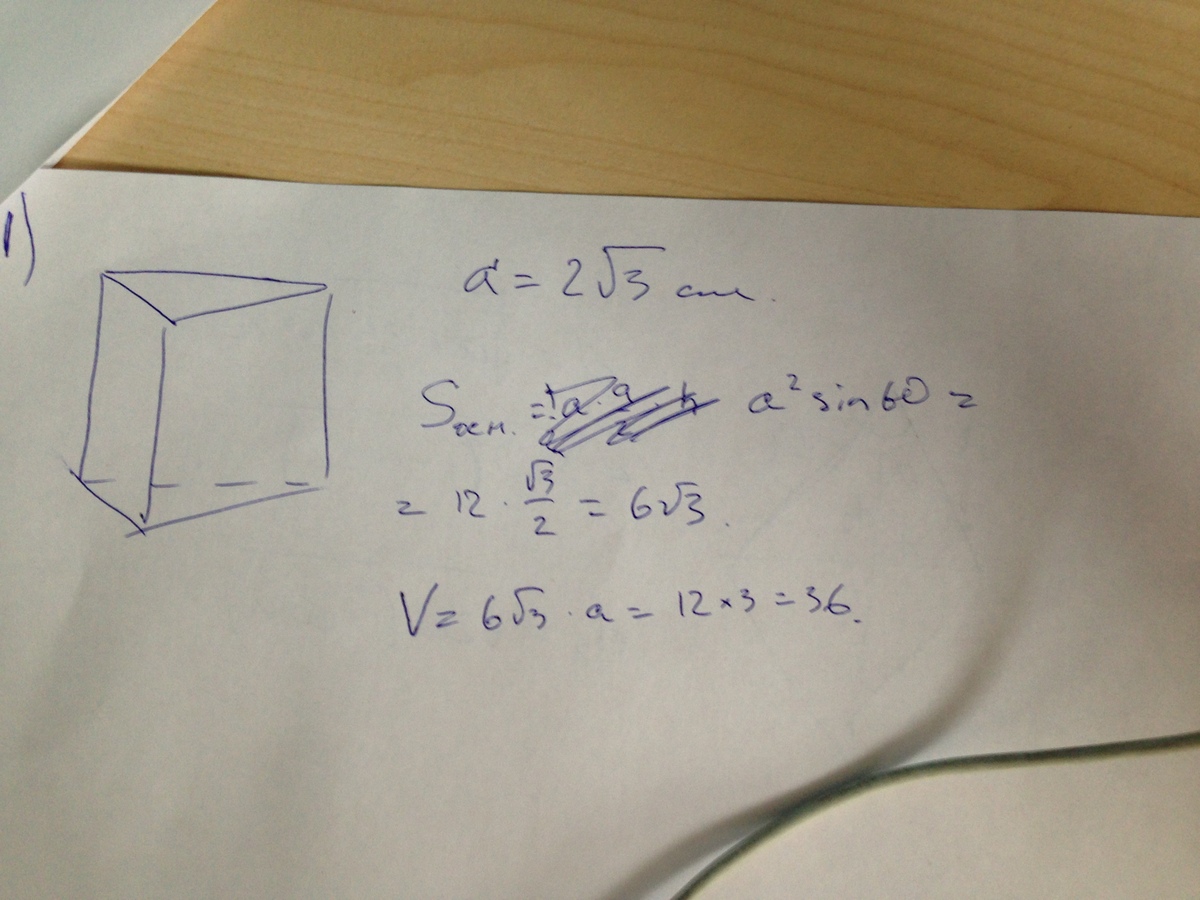 1)
a = 2√3 см.
Sосн. = a² sin60 =
= 12 · √3/2 = 6√3.
V = 6√3 · a = 12×3 = 36.